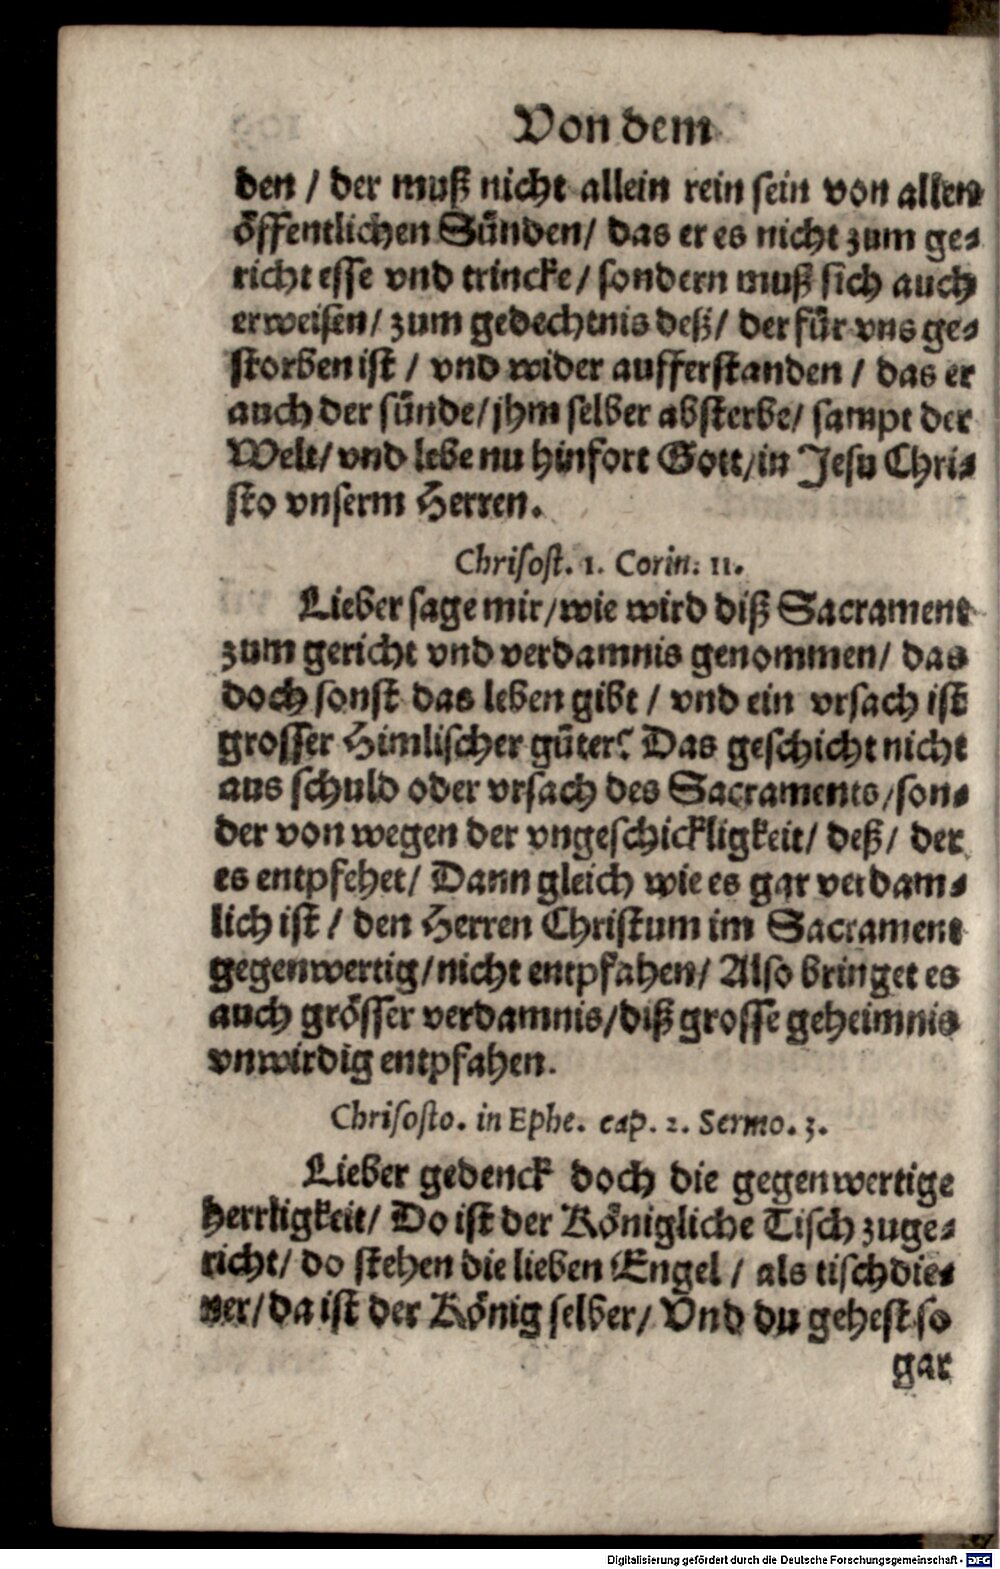 Von dem
den / der muß nicht allein rein sein von allen
öffentlichen Sünden/ das er es nicht zum ge-
richt esse vnd trincke / sondern muß sich auch
erweisen/ zum gedechtnis deß/ der für vns ge-
storben ist / vnd wider aufferstanden / das er
auch der sünde/jhm selber absterbe/ sampt der
Welt/ vnd lebe nu hinfort Gott/in Jesu Chri-
sto vnserm Herren.
Chrisost. 1. Corin. 11.
Lieber sage mir/wie wird diß Sacrament
zum gericht vnd verdamnis genommen/ das
doch sonst das leben gibt / vnd ein vrsach ist
grosser Himlischer güter? Das geschicht nicht
aus schuld oder vrsach des Sacraments/son-
der von wegen der vngeschickligkeit/ deß/ der
es entpfehet/ Dann gleich wie es gar verdam-
lich ist / den Herren Christum im Sacrament
gegenwertig/nicht entpfahen/ Also bringet es
auch grösser verdamnis/diß grosse geheimnis
vnwirdig entpfahen.
Chrisosto. in Ephe. cap. 2. Sermo. 3.
Lieber gedenck doch die gegenwertige
herrligkeit/ Do ist der Königliche Tisch zuge-
richt/ do stehen die lieben Engel / als tischdie-
ner/da ist der König selber/ Vnd du gehest so
gar
Digitalisierung gefördert durch die Deutsche Forschungsgemeinschaft - DFG